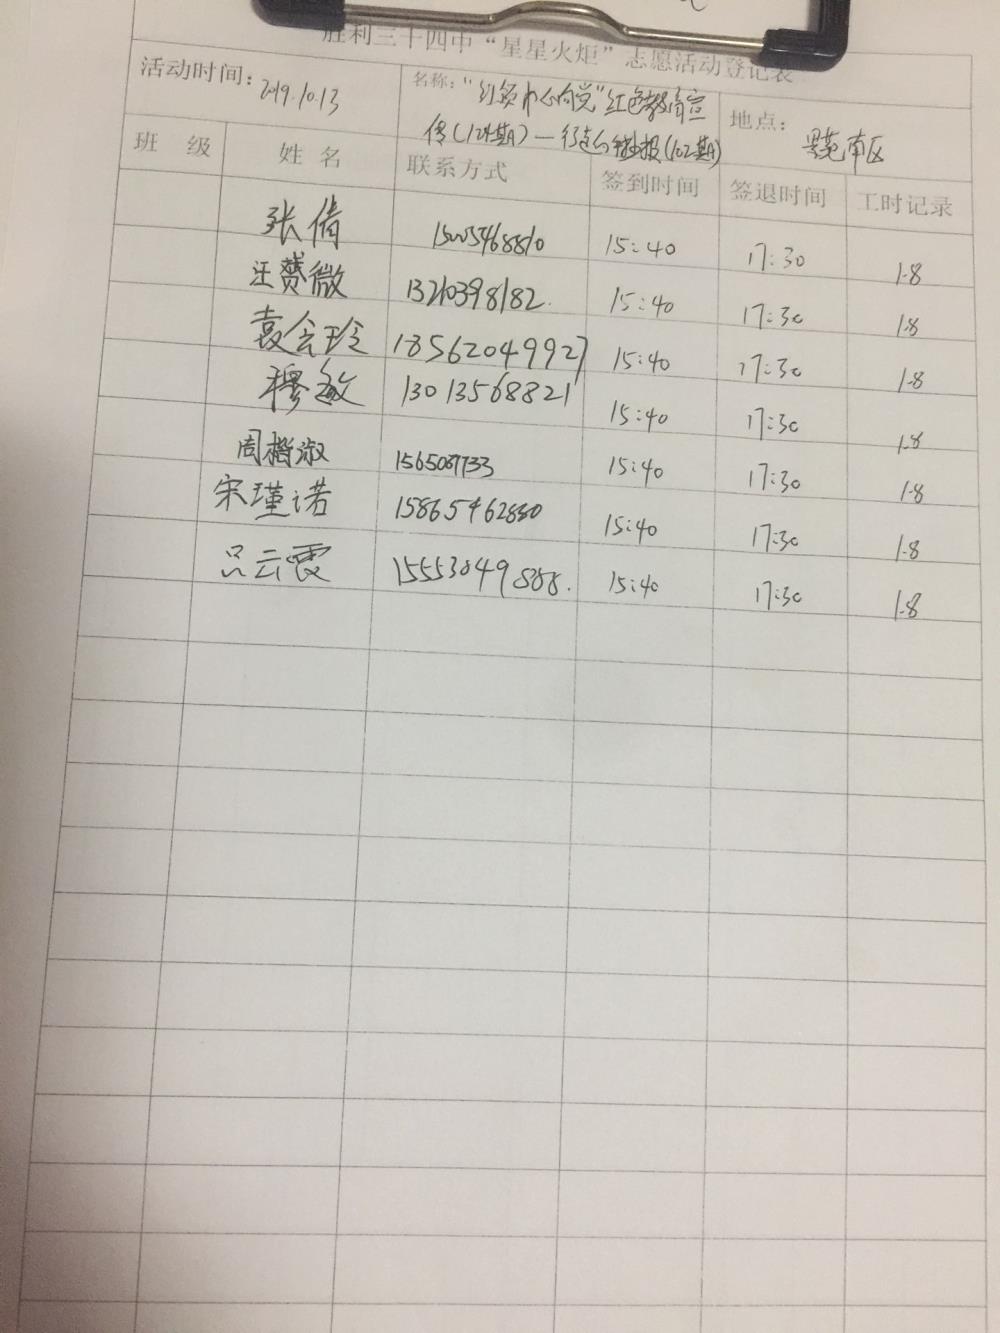 胜利三十四中“星星火炬”志愿活动登记表
活动时间: 2019.10.13 名称: “红领巾心向党”红色教育宣 地点: 景苑南区
传(124期)—行走的海报(102期)
班 级 姓 名 联系方式 签到时间 签退时间 工时记录
张倩 15:40 17:30 1.8
汪赟微 13210398182. 15:40 17:30 1.8
袁会玲 18562049927 15:40 17:30 1.8
穆敏 13013568821 15:40 17:30 1.8
周 淑 15:40 17:30 1.8
宋瑾诺 15865462830 15:40 17:30 1.8
吕云霞 15553049888. 15:40 17:30 1.8